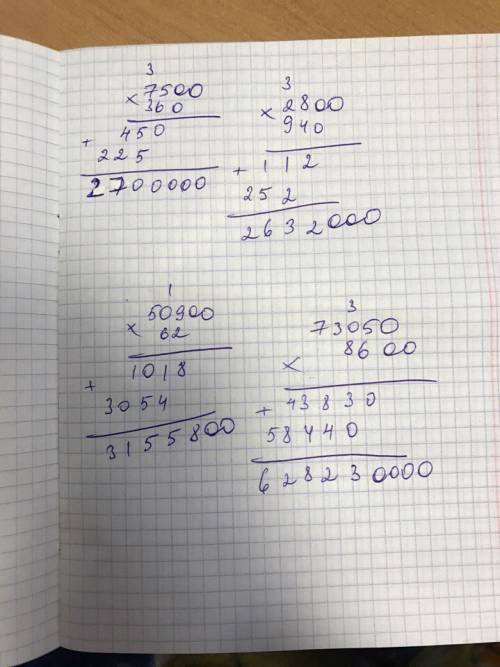 3
× 7500
360
+ 450
225
2700000
3
× 2800
940
+ 112
252
2632000
1
50900
× 62
+ 1018
3054
3155800
3
73050
8600
×
+ 43830
58440
628230000